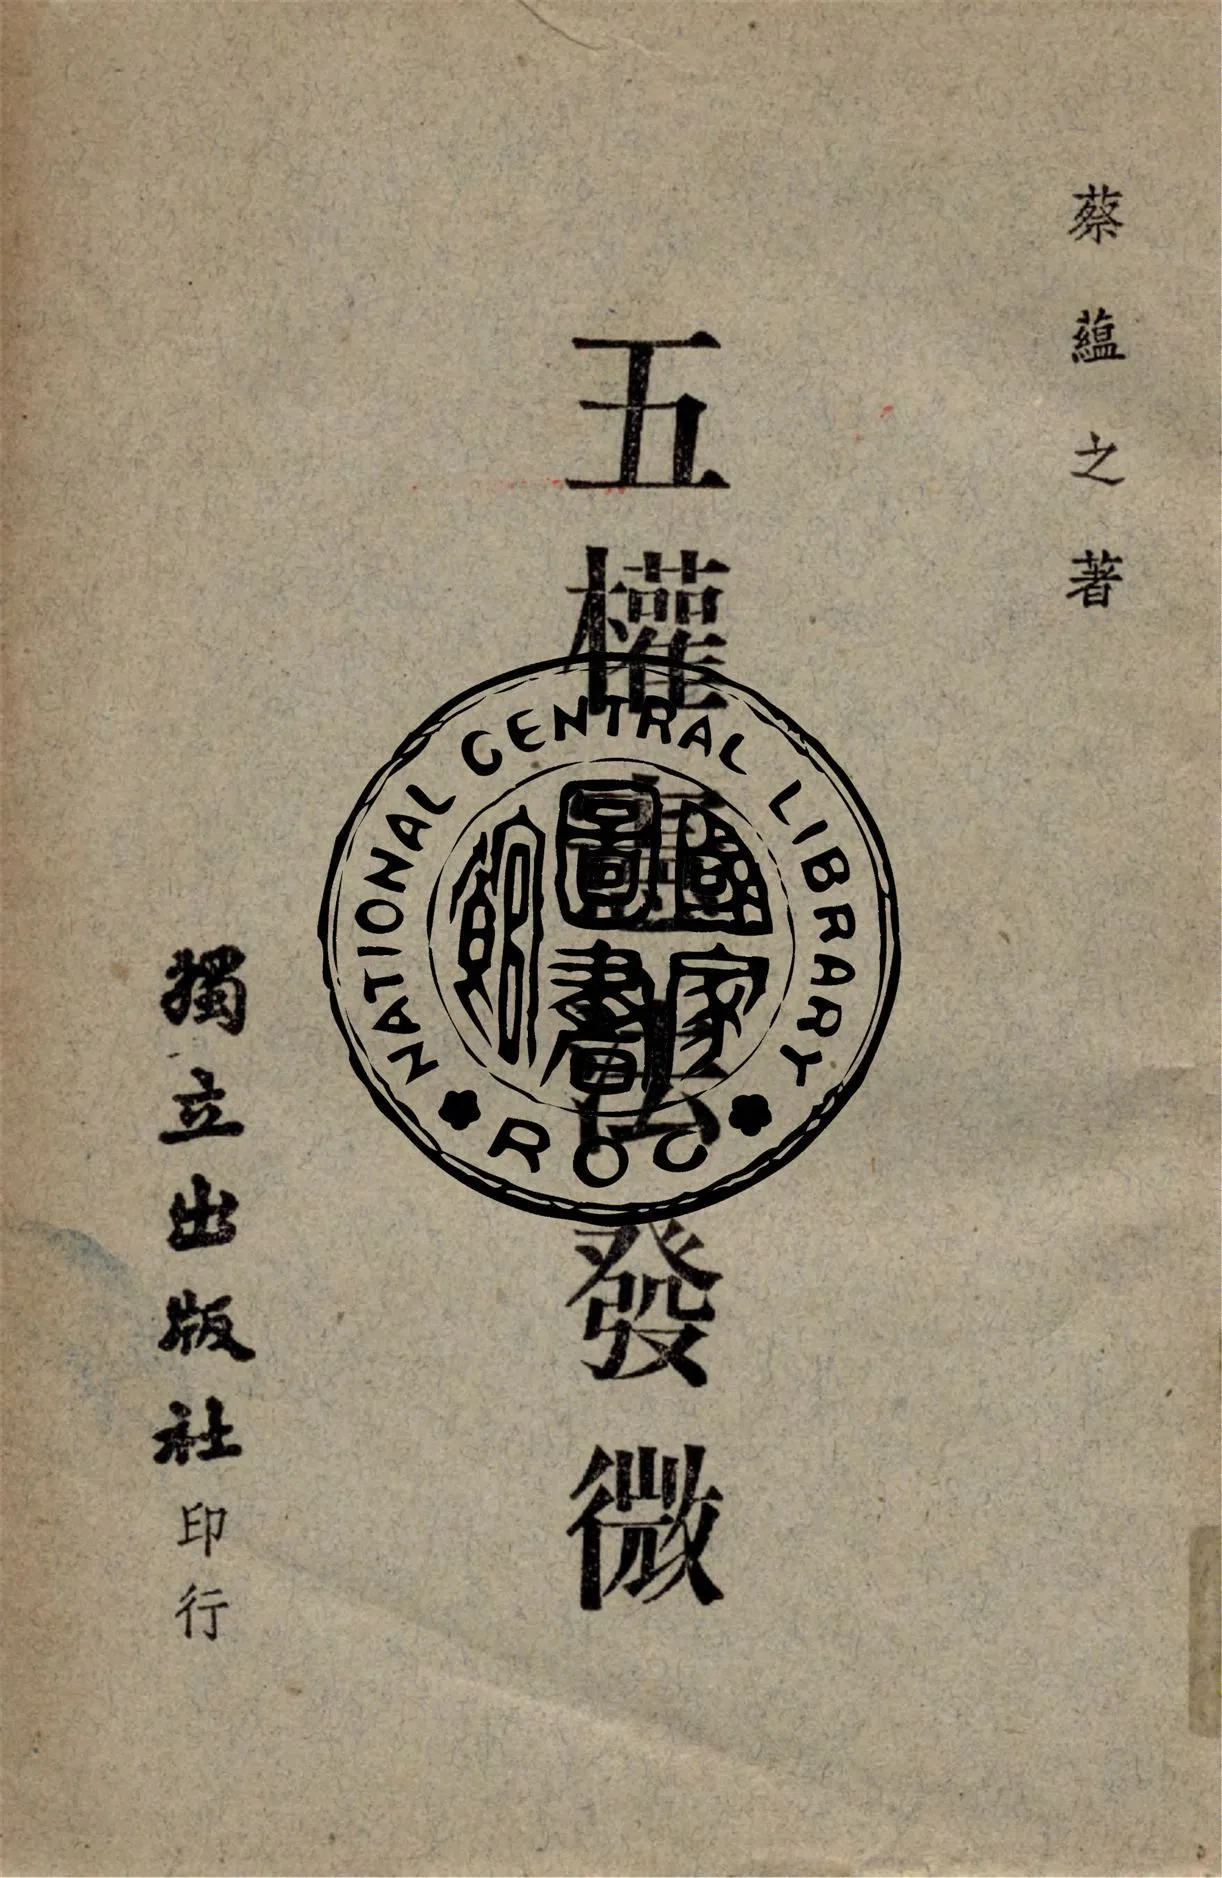 蔡蘊之著
五權憲法發微
獨立出版社印行
NATIONAL CENTRAL LIBRARY
ROC
國家圖書館